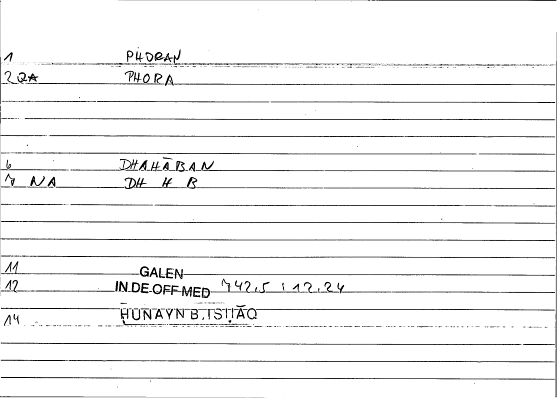 1 PHORAN
2 QA PHORA
6 DHAHĀBAN
7 NA DH H B
11 GALEN
12 IN DE OFF MED 742,5 : 12.24
14 ḤUNAYN B. ISḤĀQ